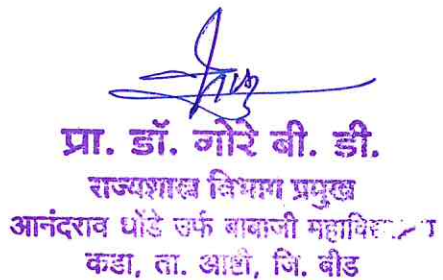 प्रा. डॉ. गोरे बी. डी.
राज्यशास्त्र विभाग प्रमुख
आनंदराव धोंडे उर्फ बाबाजी
कडा, ता. आष्टी, जि. बीड